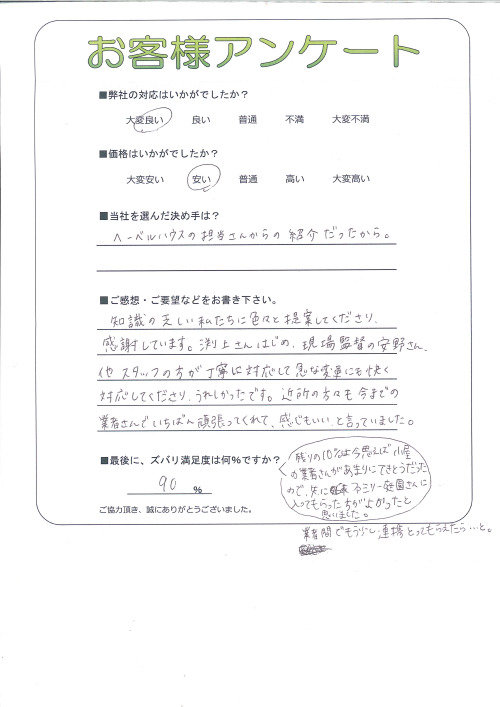 お客様アンケート
■弊社の対応はいかがでしたか？
大変良い 良い 普通 不満 大変不満
■価格はいかがでしたか？
大変安い 安い 普通 高い 大変高い
■当社を選んだ決め手は？
ヘーベルハウスの担当さんからの紹介だったから。
■ご感想・ご要望などをお書き下さい。
知識の乏しい私たちに色々と提案してくださり、
感謝しています。渕上さんはじめ、現場監督の安野さん、
他スタッフの方が丁寧に対応して急な変更にも快く
対応してくださり、うれしかったです。近所の方々も今までの
業者さんでいちばん頑張ってくれて、感じもいい、と言っていました。
■最後に、ズバリ満足度は何％ですか？
90 ％
ご協力頂き、誠にありがとうございました。
残りの10%は今思えば小屋
の業者さんがあまりにてきとうだった
ので、先に ファミリー庭園さんに
入ってもらった方がよかったと
思いました。
業者間でもう少し連携とってもらえたら…と。